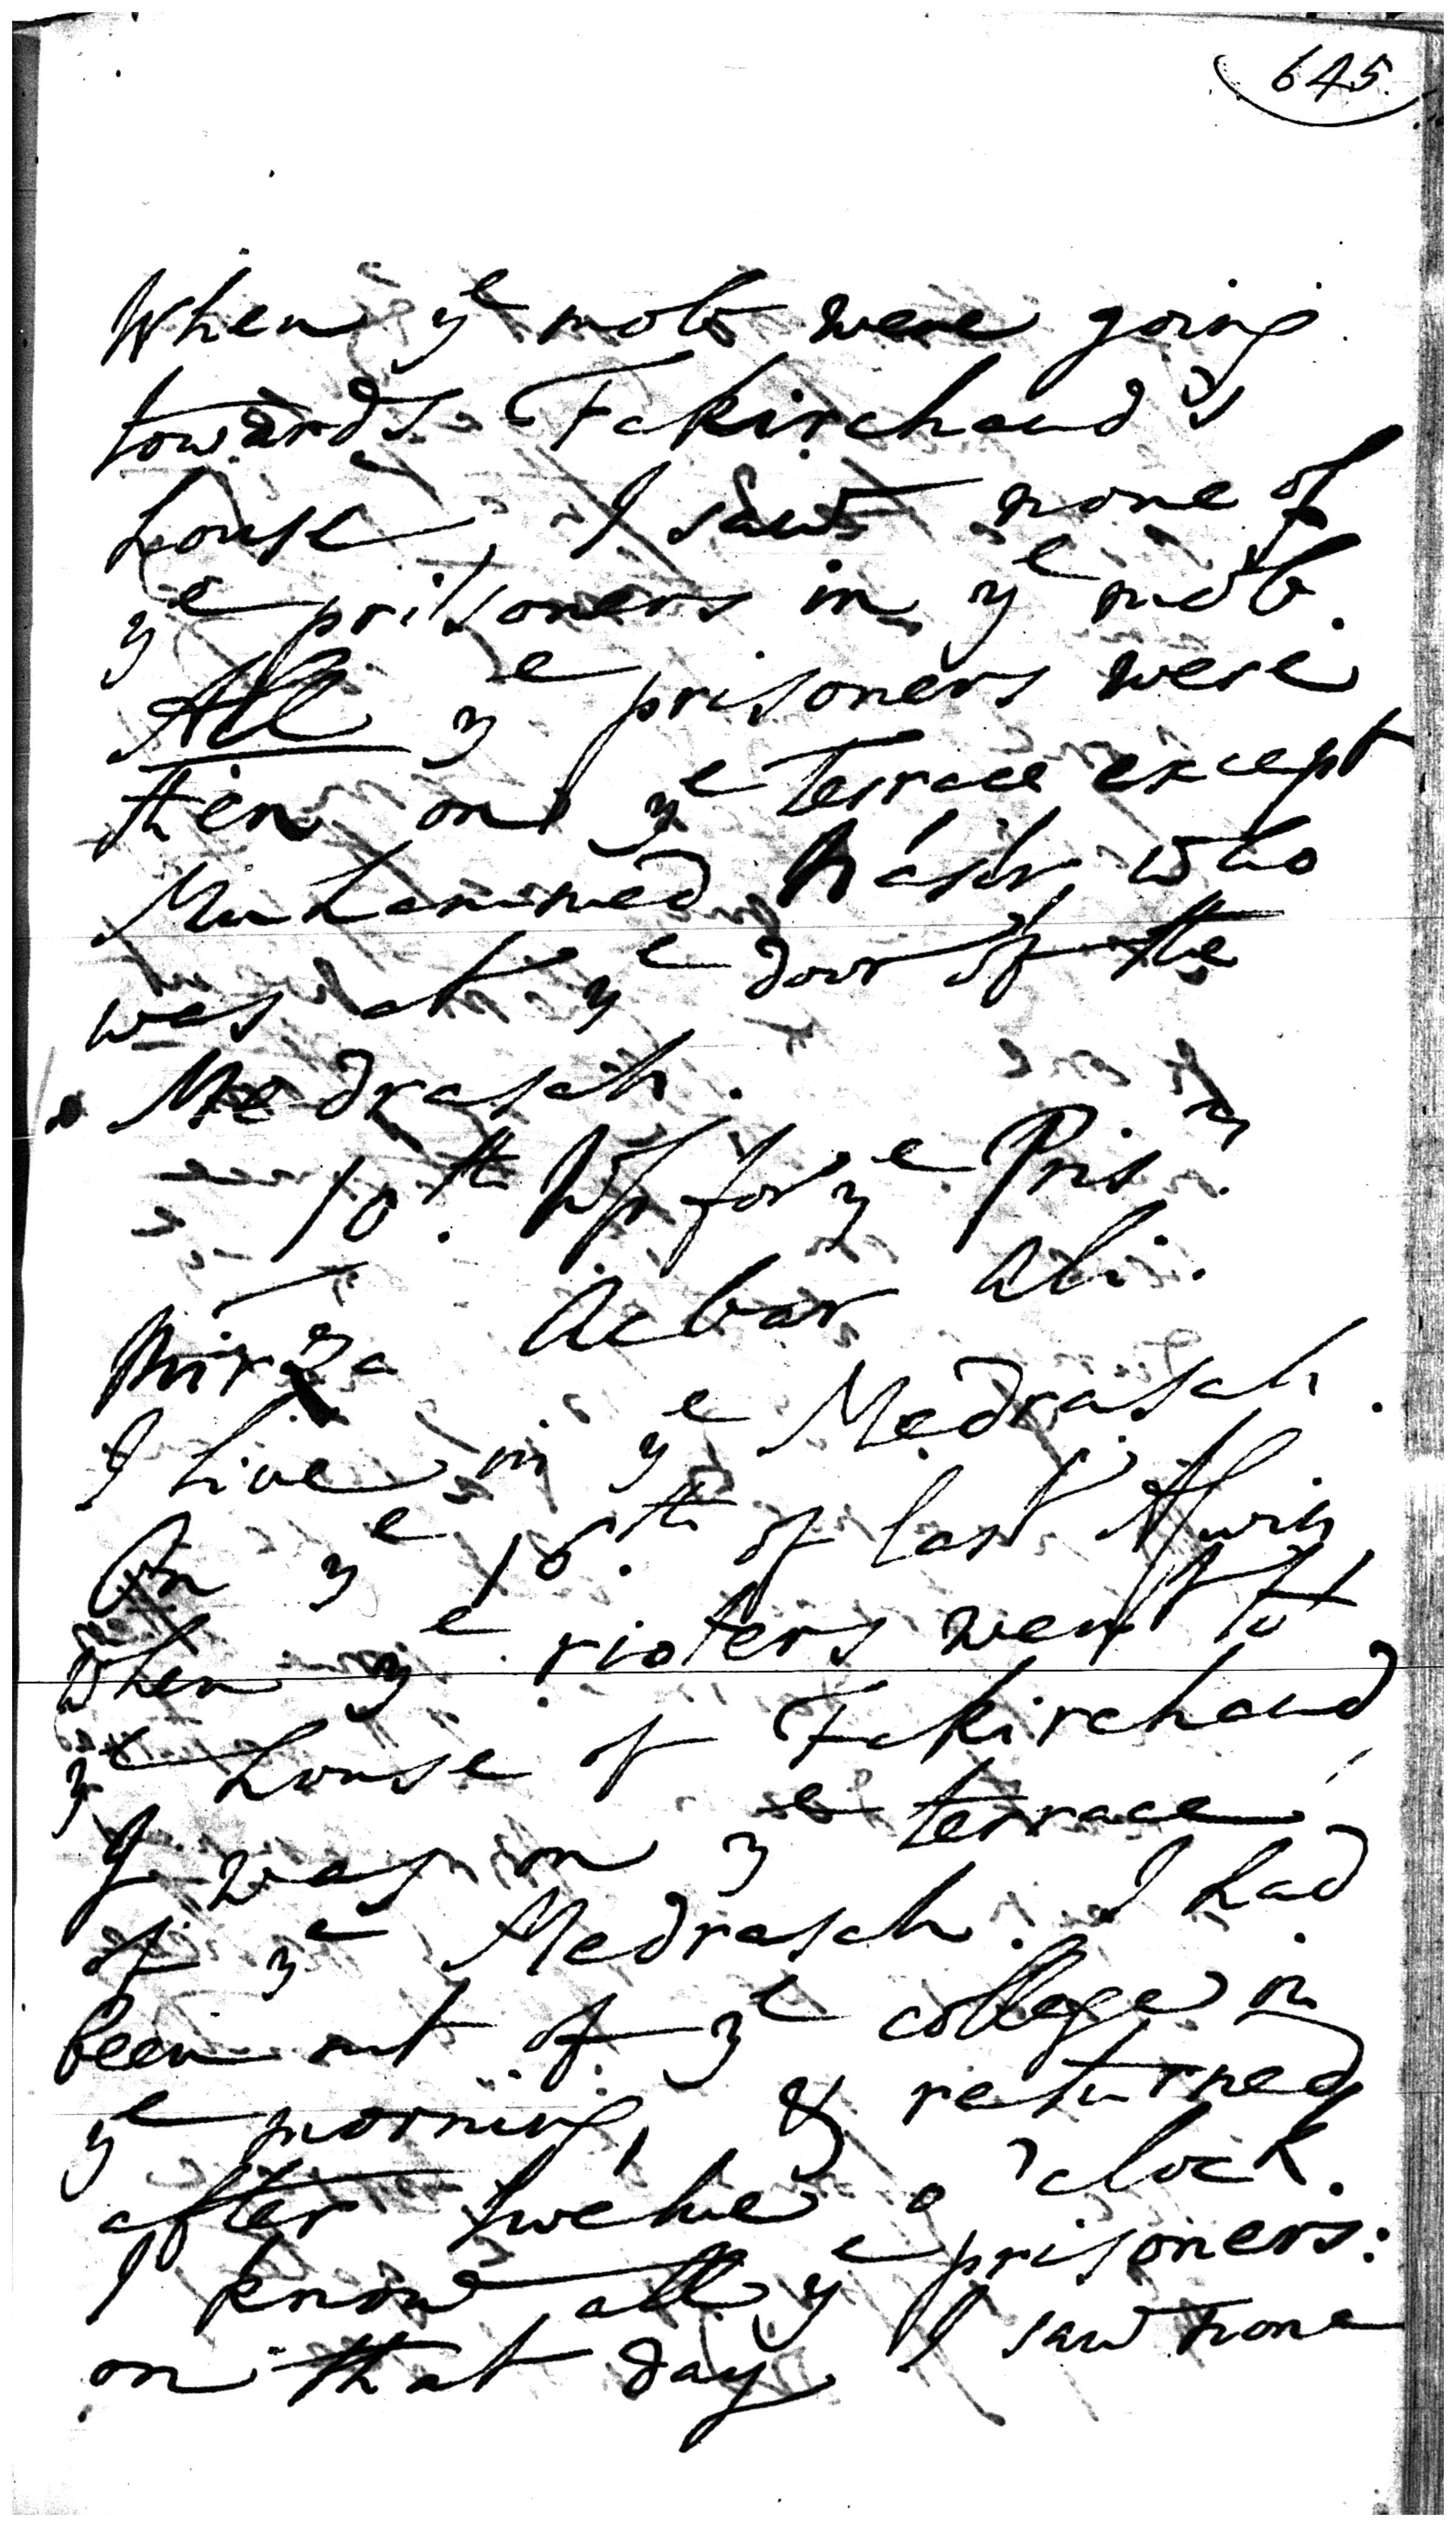 645.
When yᵉ mob were going
towards Fakirchand's
house, I saw none of
yᵉ prisoners in yᵉ mob.
All yᵉ prisoners were
then on yᵉ terrace except
Muhammed Nasir, who
was at yᵉ door of the
Medrasah.
10.ᵗʰ Wˢ for yᵉ Pris.ʳˢ
Mirza Acbar Ali.
I live in yᵉ Medrasah.
On yᵉ 16.ᵗʰ of last
when yᵉ rioters went to
yᵉ house of Fakirchand,
I was on yᵉ terrace
of yᵉ Medrasah. I had
been out of yᵉ college in
yᵉ morning, & returned
after twelve o'clock.
I know all yᵉ prisoners:
on that day I saw none